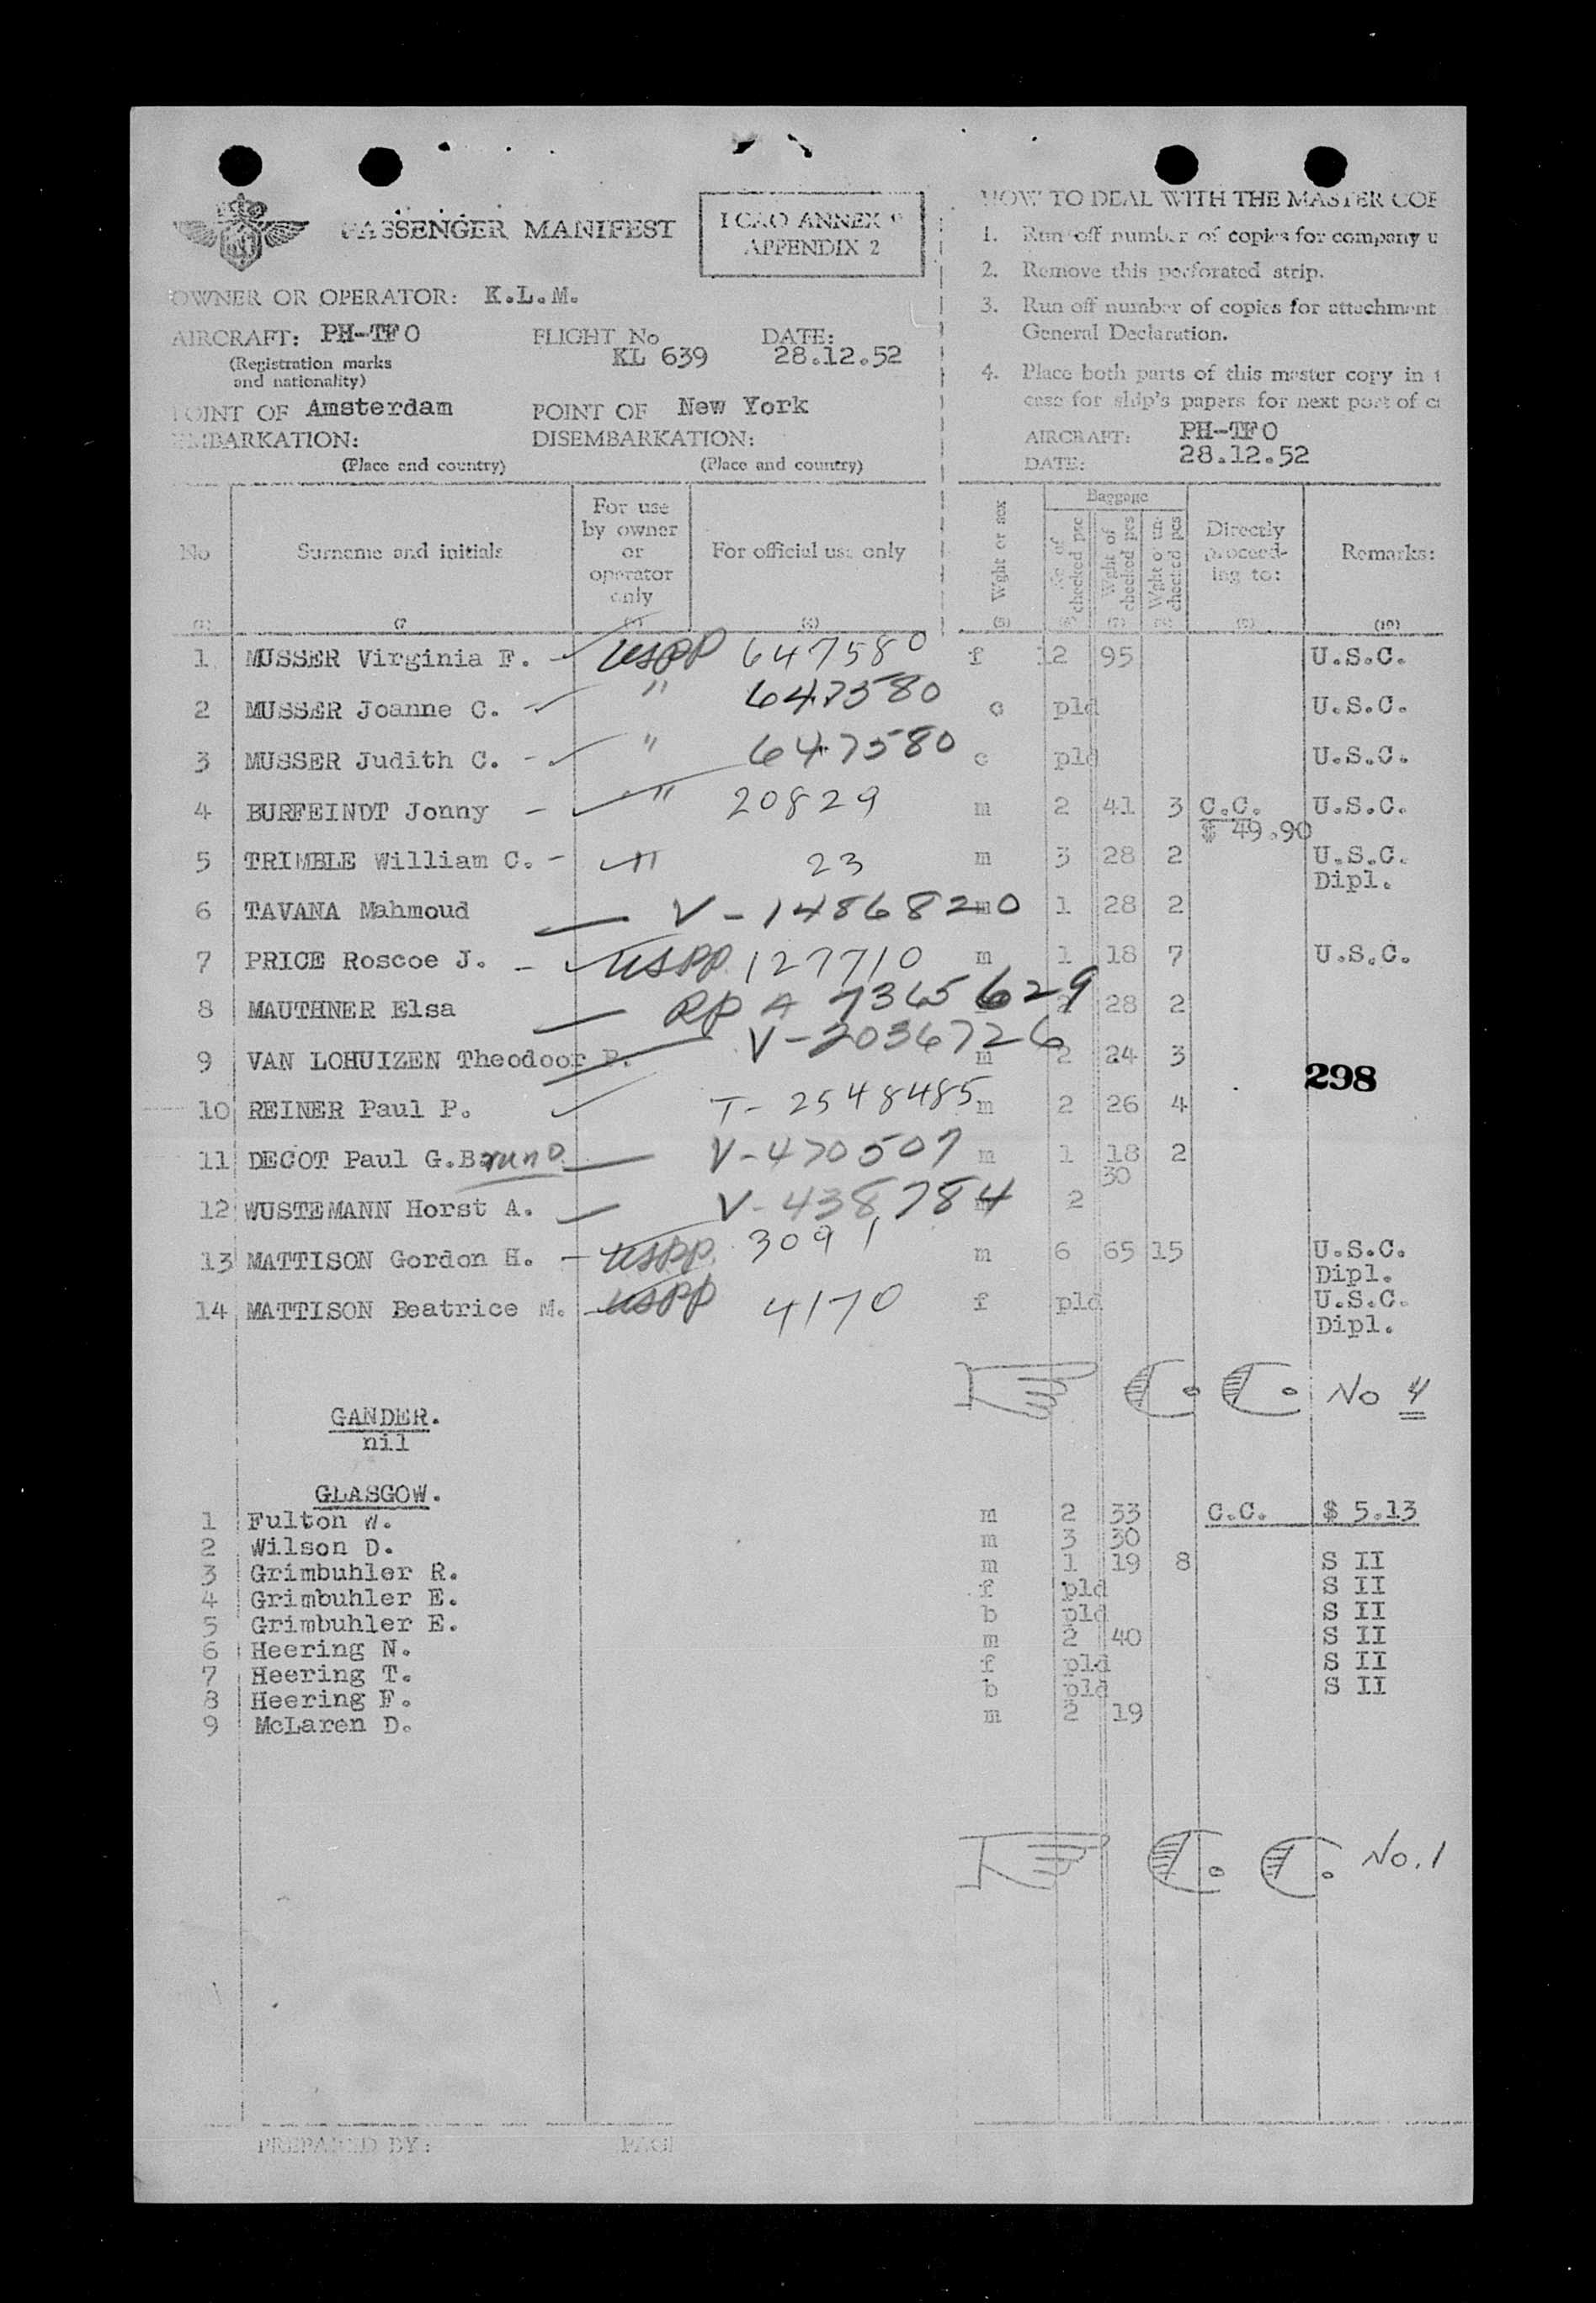 PASSENGER MANIFEST
ICAO ANNEX 9
APPENDIX 2
OWNER OR OPERATOR: K.L.M.
AIRCRAFT: PH-TFO
(Registration marks
and nationality)
FLIGHT No
KL 639
DATE:
28.12.52
POINT OF Amsterdam
EMBARKATION:
(Place and country)
POINT OF New York
DISEMBARKATION:
(Place and country)
HOW TO DEAL WITH THE MASTER COP
1. Run off number of copies for company u
2. Remove this perforated strip.
3. Run off number of copies for attachment
General Declaration.
4. Place both parts of this master copy in t
case for ship's papers for next port of c
AIRCRAFT: PH-TFO
DATE: 28.12.52
No
Surname and initials
For use
by owner
or
operator
only
For official use only
Wght or sex
Baggage
No of
checked pcs
Wght of
checked pcs
Wght of un-
checked pcs
Directly
proceed-
ing to:
Remarks:
(1) (2) (3) (4) (5) (6) (7) (8) (9) (10)
1 MUSSER Virginia F. - USPP 647580 f 12 95 U.S.C.
2 MUSSER Joanne C. - " 647580 c pld U.S.C.
3 MUSSER Judith C. - " 647580 c pld U.S.C.
4 BURFEINDT Jonny - " 20829 m 2 41 3 C.C. U.S.C.
$ 49.90
5 TRIMBLE William C. - " 23 m 3 28 2 U.S.C.
Dipl.
6 TAVANA Mahmoud V-1486820 m 1 28 2
7 PRICE Roscoe J. - USPP. 127710 m 1 18 7 U.S.C.
8 MAUTHNER Elsa RP A 7365629 2 28 2
9 VAN LOHUIZEN Theodoor P. V-2036726 m 2 24 3
298
10 REINER Paul P. T-2548485 m 2 26 4
11 DECOT Paul G.Bruno V-470507 m 1 18 2
30
12 WUSTEMANN Horst A. V-438784 2
13 MATTISON Gordon H. - USPP. 3091 m 6 65 15 U.S.C.
Dipl.
14 MATTISON Beatrice M. USPP 4170 f pld U.S.C.
Dipl.
C. C. No 4
GANDER.
nil
GLASGOW.
1 Fulton W. m 2 33 C.C. $ 5.13
2 Wilson D. m 3 30
3 Grimbuhler R. m 1 19 8 S II
4 Grimbuhler E. f pld S II
5 Grimbuhler E. b pld S II
6 Heering N. m 2 40 S II
7 Heering T. f pld S II
8 Heering F. b pld S II
9 McLaren D. m 2 19
C. C. No. 1
PREPARED BY:
PAGE